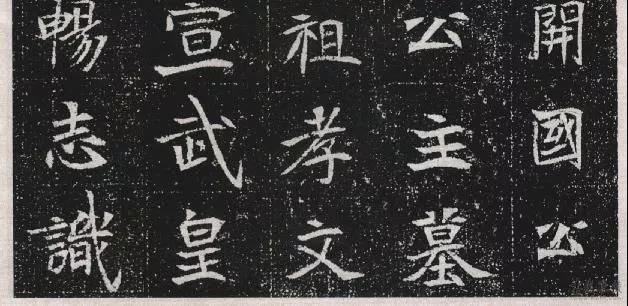 開國公
公主墓
祖孝文
宣武皇
暢志識